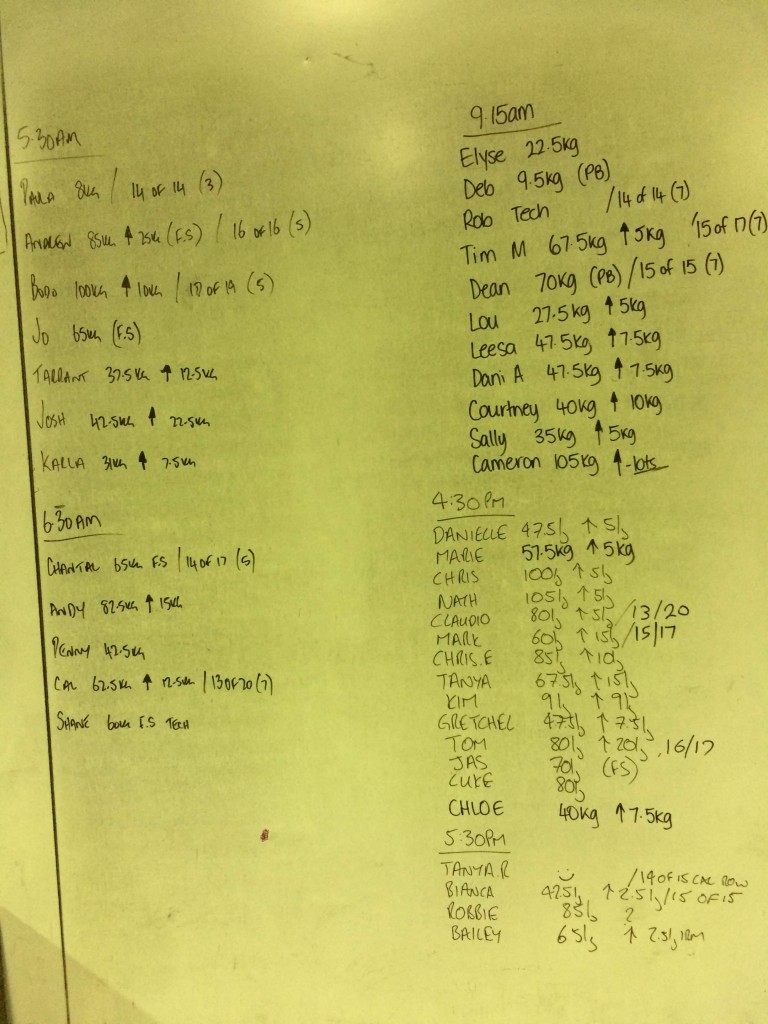 5:30AM
PAULA 8KG / 14 OF 14 (3)
ANDREW 85KG ↑ 25KG (F.S) / 16 OF 16 (5)
BODO 100KG ↑ 10KG / 18 OF 19 (5)
JO 65KG (F.S)
TARRANT 37.5KG ↑ 12.5KG
JOSH 42.5KG ↑ 22.5KG
KARLA 31KG ↑ 7.5KG
6:30AM
CHANTAL 65KG F.S / 14 OF 17 (5)
ANDY 82.5KG ↑ 15KG
PENNY 42.5KG
CAL 62.5KG ↑ 12.5KG / 13 OF 20 (7)
SHANE 60KG F.S TECH
9.15am
Elyse 22.5kg
Deb 9.5kg (PB)
Rob Tech /14 of 14 (7)
Tim M 67.5kg ↑ 5kg /15 of 17 (7)
Dean 70kg (PB) / 15 of 15 (7)
Lou 27.5kg ↑ 5kg
Leesa 47.5kg ↑ 7.5kg
Dani A 47.5kg ↑ 7.5kg
Courtney 40kg ↑ 10kg
Sally 35kg ↑ 5kg
Cameron 105kg ↑ -lots
4:30PM
DANIELLE 47.5kg ↑ 5kg
MARIE 57.5kg ↑ 5kg
CHRIS 100kg ↑ 5kg
NATH 105kg ↑ 5kg
CLAUDIO 80kg ↑ 5kg /13/20
MARK 60kg ↑ 15kg /15/17
CHRIS.E 85kg ↑ 10kg
TANYA 67.5kg ↑ 15kg
KIM 9kg ↑ 9kg
GRETCHEL 47.5kg ↑ 7.5kg
TOM 80kg ↑ 20kg , 16/17
JAS 70kg (FS)
LUKE 80kg
CHLOE 40kg ↑ 7.5kg
5:30PM
TANYA.R /14 OF 15 CAL ROW
BIANCA 42.5kg ↑ 2.5kg /15 OF 15
ROBBIE 85kg ?
BAILEY 65kg ↑ 2.5kg 1RM